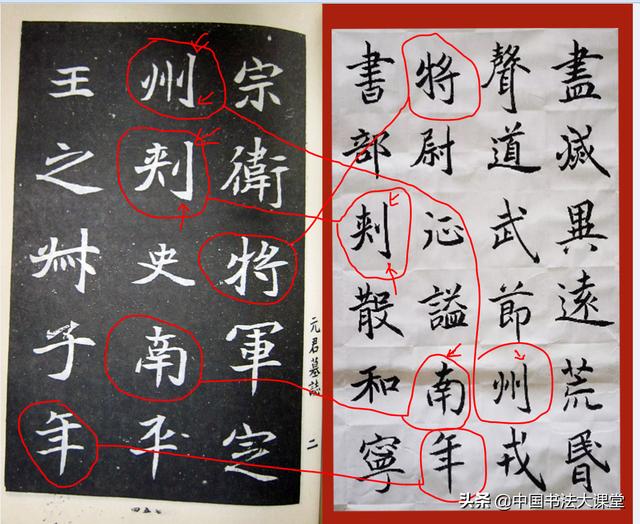 宗衛將軍定
州刾史南平
王之子年
元君墓誌 二
盡滅異遠荒昬
聲道武節州戎
將尉征謚南年
書部刾散和寧
头条 @中国书法大课堂